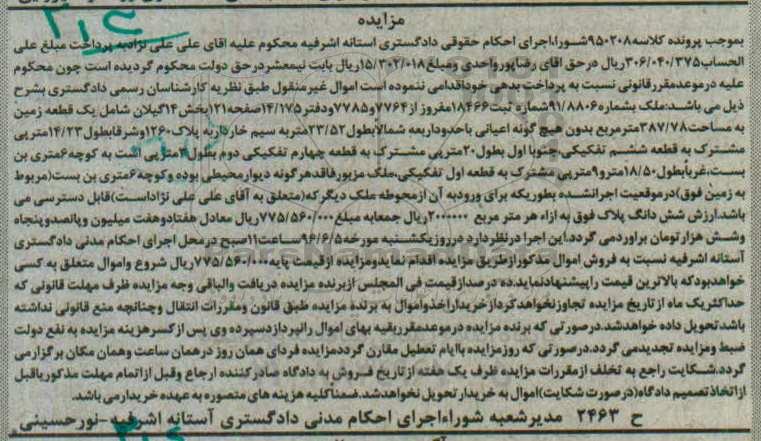 مزایده
بموجب پرونده کلاسه۹۵۰۲۰۸شورا،اجرای احکام حقوقی دادگستری استانه اشرفیه محکوم علیه اقای علی علی نژادبه پرداخت مبلغ علی
الحساب۳۰۶/۰۴۰/۳۷۵ریال درحق اقای رضاپورواحدی ومبلغ۱۵/۳۰۲/۰۱۸ریال بابت نیمعشردرحق دولت محکوم گردیده است چون محکوم
علیه درموعدمقررقانونی نسبت به پرداخت بدهی خوداقدامی ننموده است اموال غیرمنقول طبق نظریه کارشناسان رسمی دادگستری بشرح
ذیل می باشد:ملک بشماره۹۱/۸۸۰۶شماره ثبت۱۸۴۶۶مفروز از۷۷۶۴و۷۷۸۵ودفتر۱۴/۱۷۵صفحه۱۲۱بخش۱۴گیلان شامل یک قطعه زمین
به مساحت۳۸۷/۷۸مترمربع بدون هیچ گونه اعیانی باحدوداربعه شمالابطول۲۳/۵۲متربه سیم خاردارپه پلاک۱۲۶۰وشرقابطول۱۴/۲۳مترپی
مشترک به قطعه ششم تفکیکی،جنوبا اول بطول۲۰مترپی مشترک به قطعه چهارم تفکیکی دوم بطول۴مترپی است به کوچه۶متری بن
بست،غربابطول۱۸/۵۰مترو۹مترپی مشترک به قطعه اول تفکیکی،ملک مزبورفاقدهرگونه دیوارمحیطی بوده وکوچه۶متری بن بست(مربوط
به زمین فوق)درموقعیت اجرانشده بطوریکه برای ورودبه آن ازمحوطه ملک دیگر که(متعلق به آقای علی علی نژاداست)قابل دسترسی می
باشد.ارزش شش دانگ پلاک فوق به ازاء هر متر مربع ۲۰۰۰۰۰۰ریال جمعابه مبلغ۷۷۵/۵۶۰/۰۰۰ریال معادل هفتادوهفت میلیون وپانصدوپنجاه
وشش هزارتومان براوردمی گردد.این اجرا درنظردارد درروزیکشنبه مورخه۹۶/۶/۵ساعت۱۱صبح درمحل اجرای احکام مدنی دادگستری
آستانه اشرفیه نسبت به فروش اموال مذکورازطریق مزایده اقدام نمایدومزایده ازقیمت پایه۷۷۵/۵۶۰/۰۰۰ریال شروع واموال متعلق به کسی
خواهدبودکه بالاترین قیمت راپیشنهادنماید.ده درصدازقیمت فی المجلس ازبرنده مزایده دریافت والباقی وجه مزایده ظرف مهلت قانونی که
حداکثریک ماه ازتاریخ مزایده تجاوزنخواهدکردازخریداراخذواموال به برنده مزایده طبق قانون ومقررات انتقال وچنانچه منع قانونی نداشته
باشدتحویل داده خواهدشد.درصورتی که برنده مزایده درموعدمقرربقیه بهای اموال رانپردازدسپرده وی پس ازکسرهزینه مزایده به نفع دولت
ضبط ومزایده تجدیدمی گردد.درصورتی که روزمزایده باایام تعطیل مقارن گرددمزایده فردای همان روز درهمان ساعت وهمان مکان برگزارمی
گردد.شکایت راجع به تخلف ازمقررات مزایده ظرف یک هفته ازتاریخ فروش به دادگاه صادرکننده ارجاع وقبل ازاتمام مهلت مذکوریاقبل
ازاتخاذتصمیم دادگاه(درصورت شکایت)اموال به خریدارتحویل نخواهدشد.ضمناکلیه هزینه های متصوره به عهده خریدارمی باشد.
ح ۲۴۶۳ مدیرشعبه شوراءاجرای احکام مدنی دادگستری آستانه اشرفیه-نورحسینی